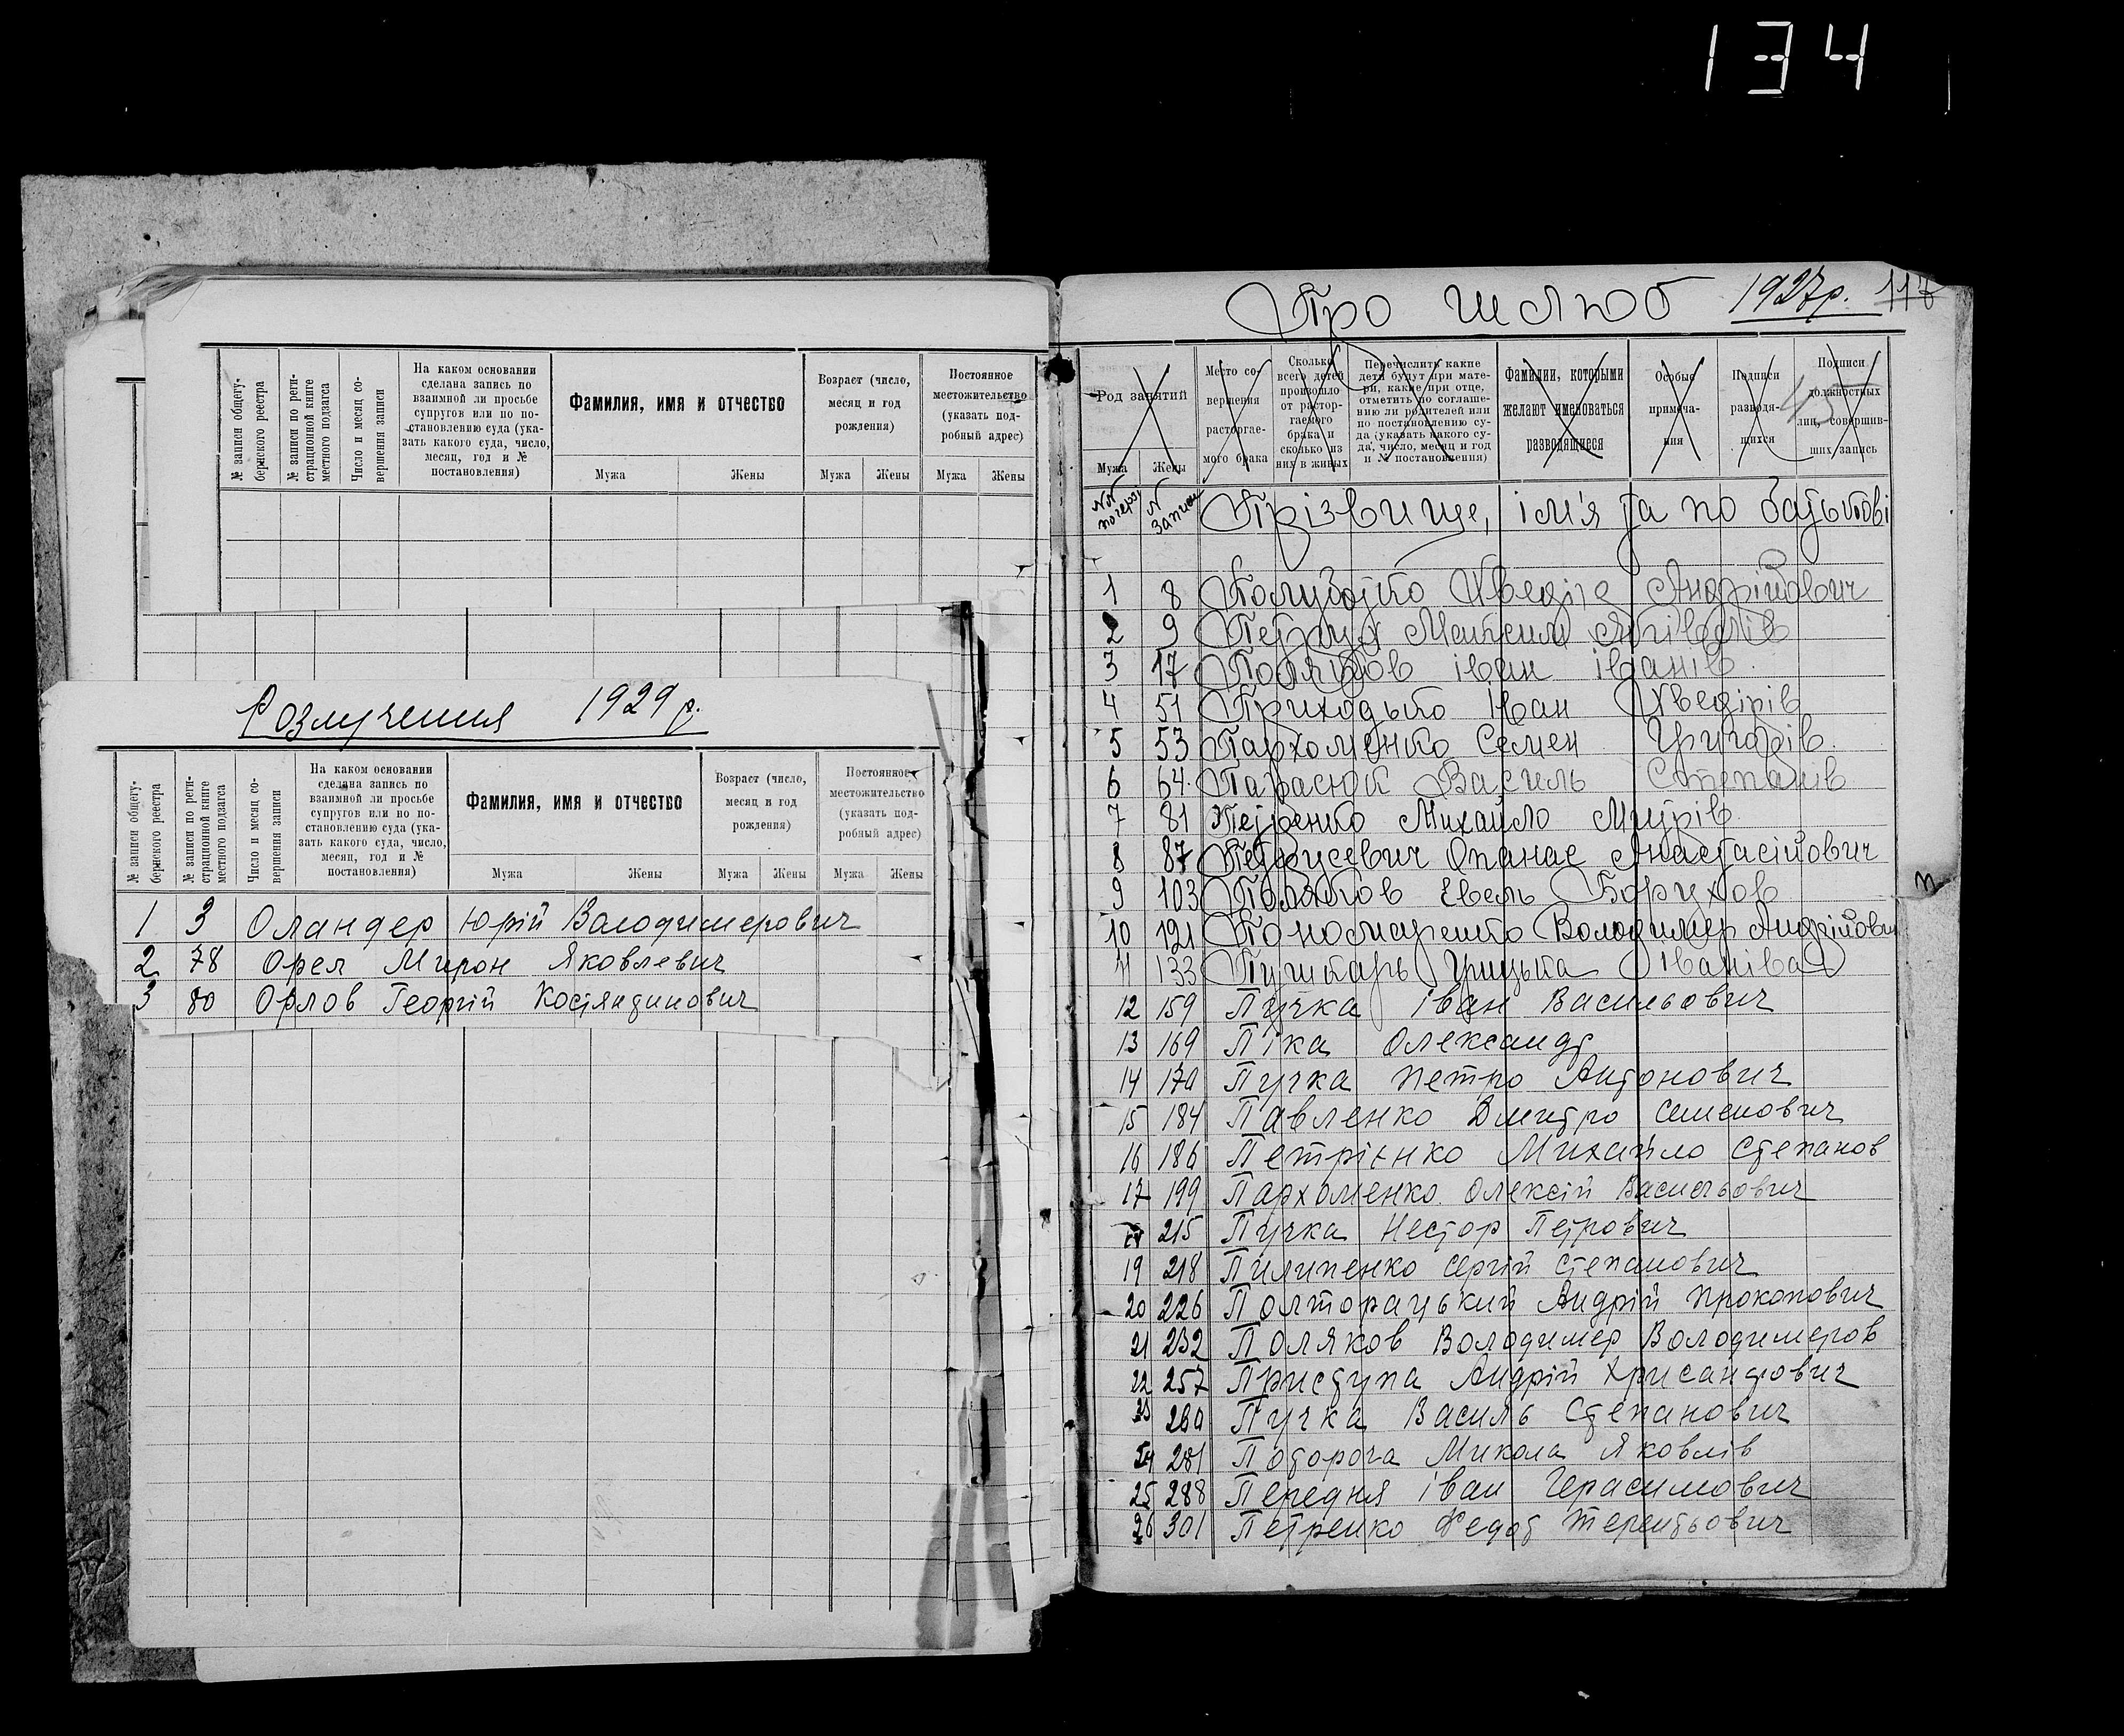 134
№ записи общегу-
бернского реестра
№ записи по реги-
страционной книге
местного подзагса
Число и месяц со-
вершения записи
На каком основании
сделана запись по
взаимной ли просьбе
супругов или по по-
становлению суда (ука-
зать какого суда, число,
месяц, год и №
постановления)
Фамилия, имя и отчество
Мужа Жены
Возраст (число,
месяц и год
рождения)
Мужа Жены
Постоянное
местожительство
(указать под-
робный адрес)
Мужа Жены
Розлучення 1929 р.
№ записи общегу-
бернского реестра
№ записи по реги-
страционной книге
местного подзагса
Число и месяц со-
вершения записи
На каком основании
сделана запись по
взаимной ли просьбе
супругов или по по-
становлению суда (ука-
зать какого суда, число,
месяц, год и №
постановления)
Фамилия, имя и отчество
Мужа Жены
Возраст (число,
месяц и год
рождения)
Мужа Жены
Постоянное
местожительство
(указать под-
робный адрес)
Мужа Жены
1 3 Оландер Юрій Володимерович
2 78 Орел Мирон Яковлевич
3 80 Орлов Георгій Костянтинович
Про шлюб 1927р. 117
Род занятий
Мужа Жены
Место со-
вершения
расторгае-
мого брака
Сколько
всего детей
произошло
от растор-
гаемого
брака и
сколько из
них в живых
Перечислить какие
дети будут при мате-
ри, какие при отце,
отметить по соглаше-
нию ли родителей или
по постановлению су-
да (указать какого су-
да, число, месяц и год
и № постановления)
Фамилии, которыми
желают именоваться
разводящиеся
Особые
примеча-
ния
Подписи
разводя-
щихся
Подписи
должностных
лиц, совершив-
ших запись
45
№№ по черзі № Запису Прізвище, ім'я та по батькові
1 8 Хведір Андрійович
2 9 Петруц Максим Яківлів
3 17 Поляков Іван Іванів
4 51 Приходько Іван Хведірів
5 53 Пархоменко Семен Григорів
6 64 Парасюк Василь Степанів
7 81 Петренко Михайло Дмитрів
8 87 Петрусевич Опанас Анастасійович
9 103 Поляков Евель Борухов
10 121 Пономаренко Володимер Андрійович
11 133 Пушкарь Грицька Іванівна
12 159 Пучка Іван Васильович
13 169 Піка Олександр
14 170 Пучка Петро Антонович
15 184 Павленко Дмитро Семенович
16 186 Петрієнко Михайло Степанов
17 199 Пархоменко Олексій Васильович
18 215 Пучка Нестор Петрович
19 218 Пилипенко Сергій Степанович
20 226 Полторацький Андрій Прокопович
21 232 Поляков Володимер Володимеров
22 257 Приступа Андрій Хрисанфович
23 260 Пучка Василь Степанович
24 281 Микола Яковлів
25 288 Передня Іван Герасимович
26 301 Петренко Федот Терентьович
п